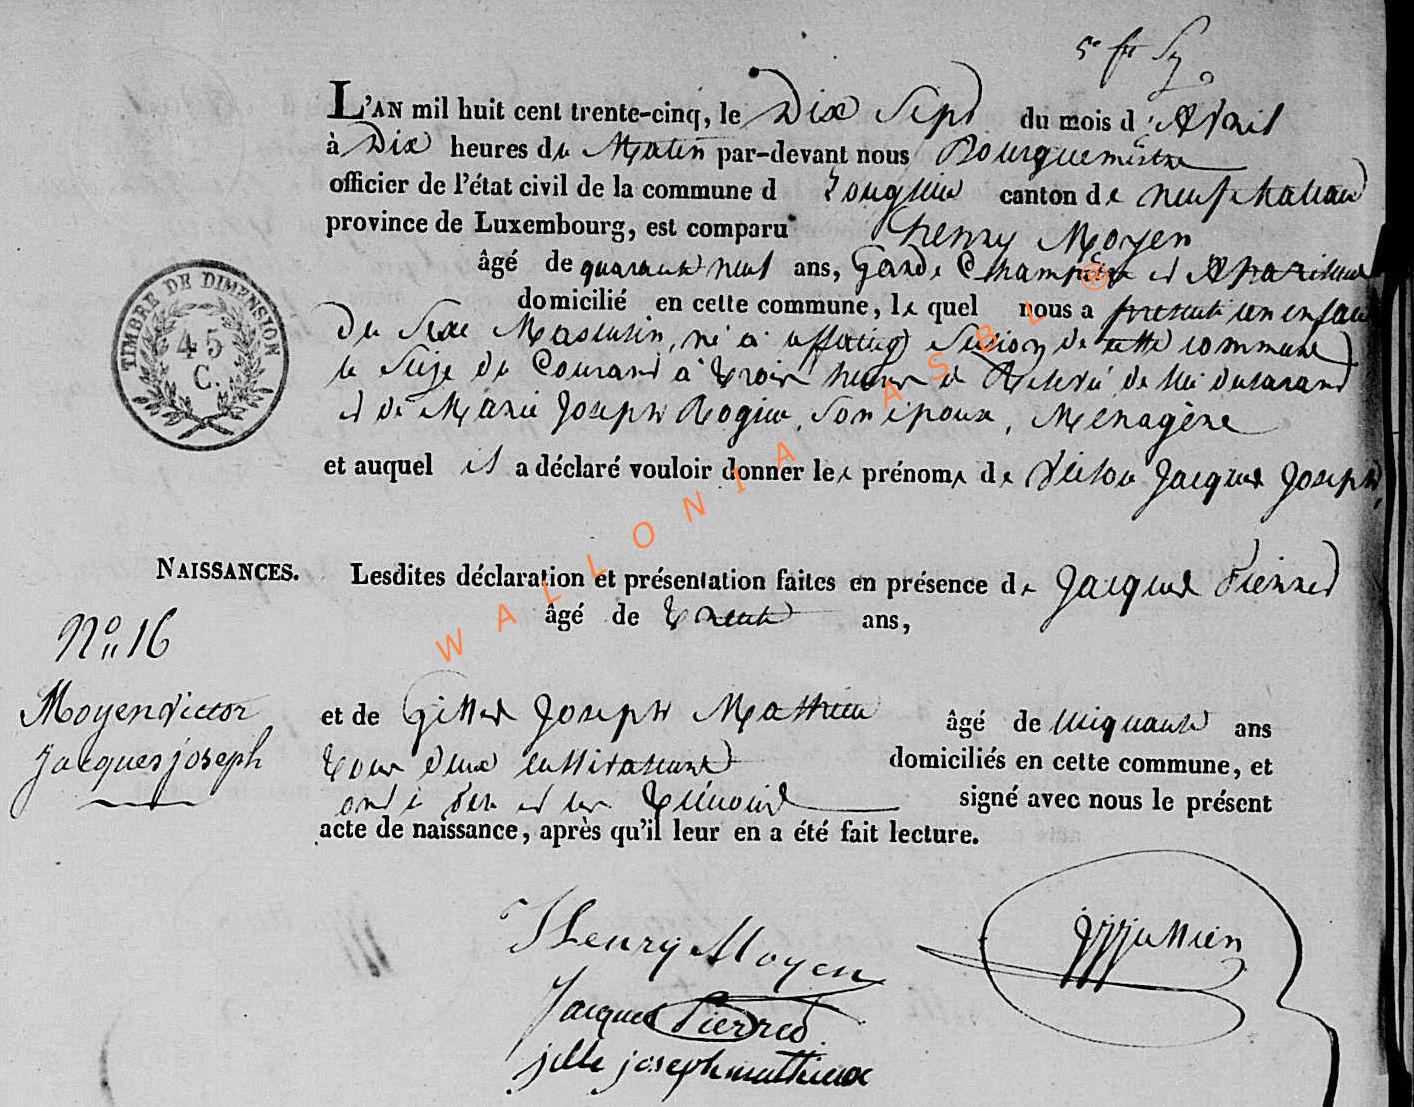 L'AN mil huit cent trente-cinq, le Dix Sept du mois d'Avril
à Dix heures du Matin par-devant nous Bourguemestre
officier de l'état civil de la commune d Longlier canton de neufchateau
province de Luxembourg, est comparu henry Moyen
âgé de quarante neuf ans, Garde Champêtre et
domicilié en cette commune, le quel nous a présenté un enfant
Du Sexe Masculin, né à offaing Section de cette commune
le Seize du Courant à trois heures de Relevée de lui déclarant
et de Marie Joseph Rogier, Son épouse, Ménagère
et auquel il a déclaré vouloir donner les prénoms de Victor Jacques Joseph,
NAISSANCES.
Lesdites déclaration et présentation faites en présence de Jacques Pierred
âgé de trente ans,
N° 16
Moyen Victor
jacques joseph
et de Gilles Joseph Mathieu âgé de cinquante ans
tous deux cultivateurs domiciliés en cette commune, et
ont le père et les témoins signé avec nous le présent
acte de naissance, après qu'il leur en a été fait lecture.
Henry Moyen
Jacques Pierred
jille joseph mathieux
TIMBRE DE DIMENSION
45
C.
WALLONIA ASBL ®